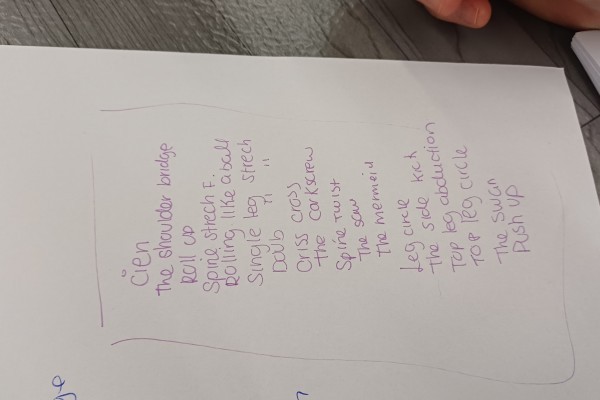 Cień
the shoulder bridge
Roll up
Spine strech F.
Rolling like a ball
Single leg strech
Doub " "
Criss cross
the corkscrew
Spine twist
The saw
the mermeid
Leg circle
the side kick
Top leg abduction
Top leg circle
The swan
Push up